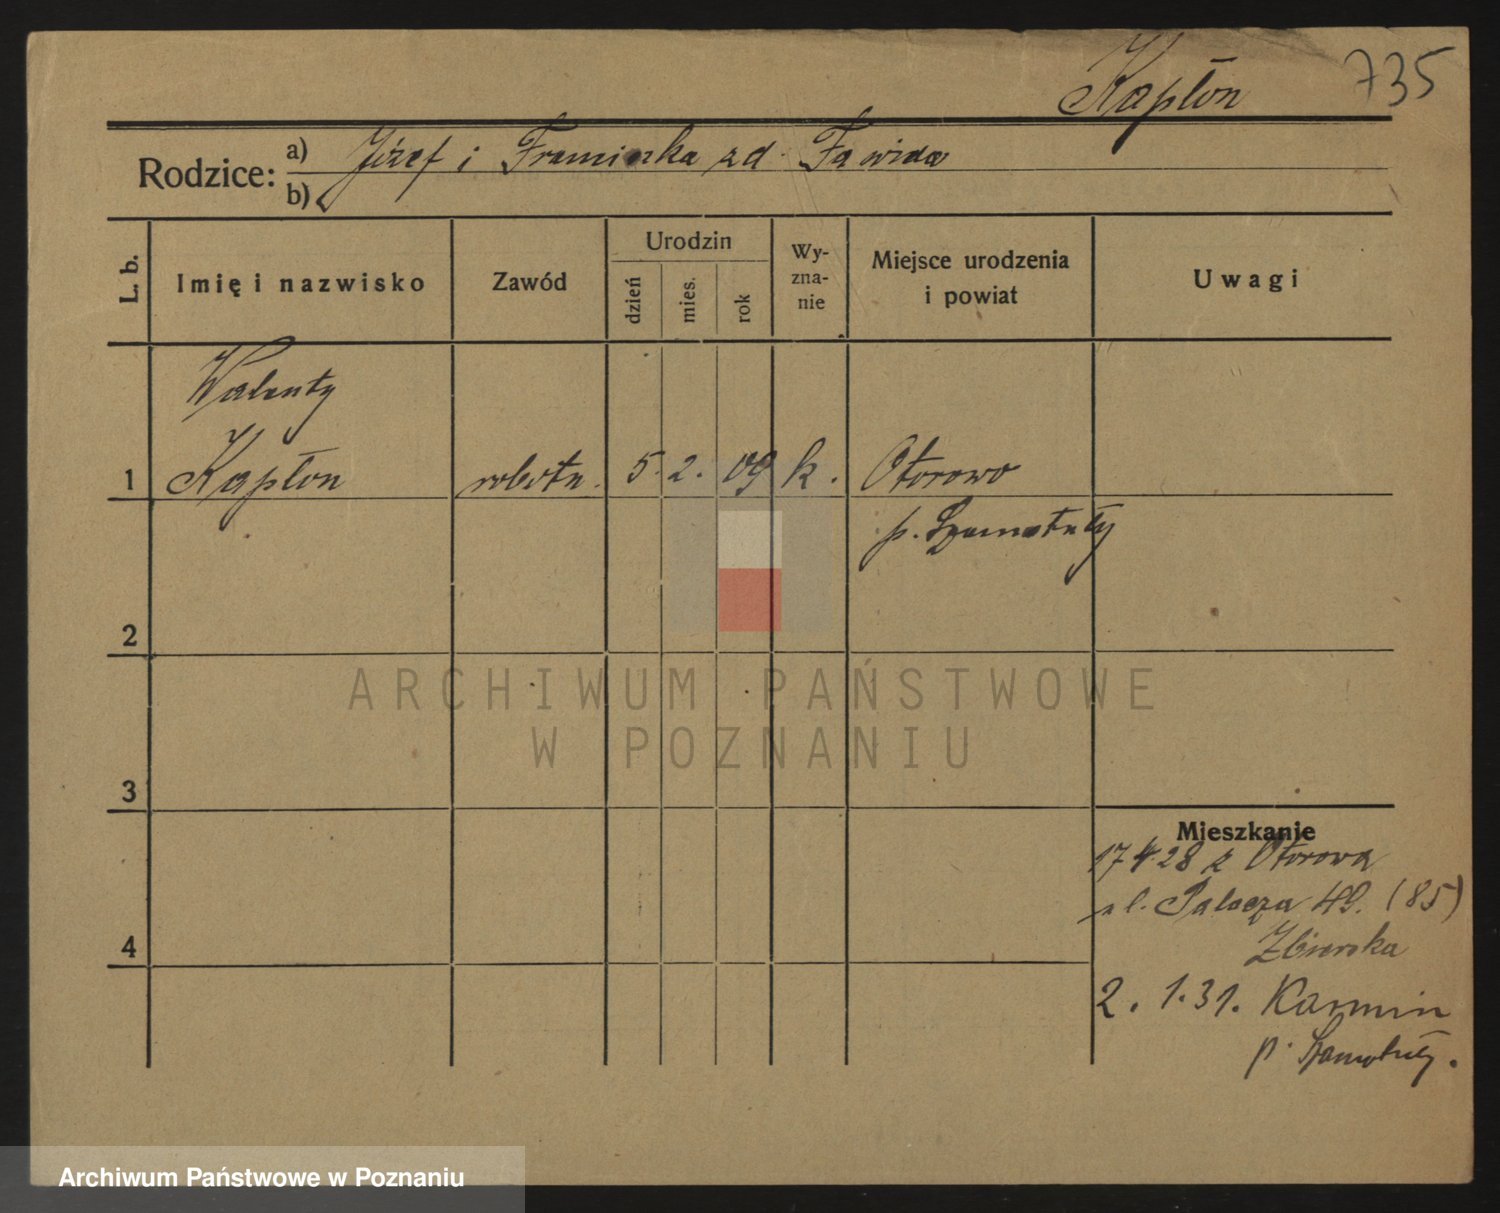 Kapłon 735
Rodzice: a) Józef i Franciszka zd.
b)
L. b.
Imię i nazwisko
Zawód
Urodzin
dzień
mies.
rok
Wy-
zna-
nie
Miejsce urodzenia
i powiat
Uwagi
Walenty
1 Kapłon robotn. 5. 2. 09 k. Otorowo
p. Szamotuły
2
3
4
Mieszkanie
17 4 28 z Otorowa
ul. Palacza 49. (85)
2. 1. 31. Karmin
p. Szamotuły.
ARCHIWUM PAŃSTWOWE
W POZNANIU
Archiwum Państwowe w Poznaniu